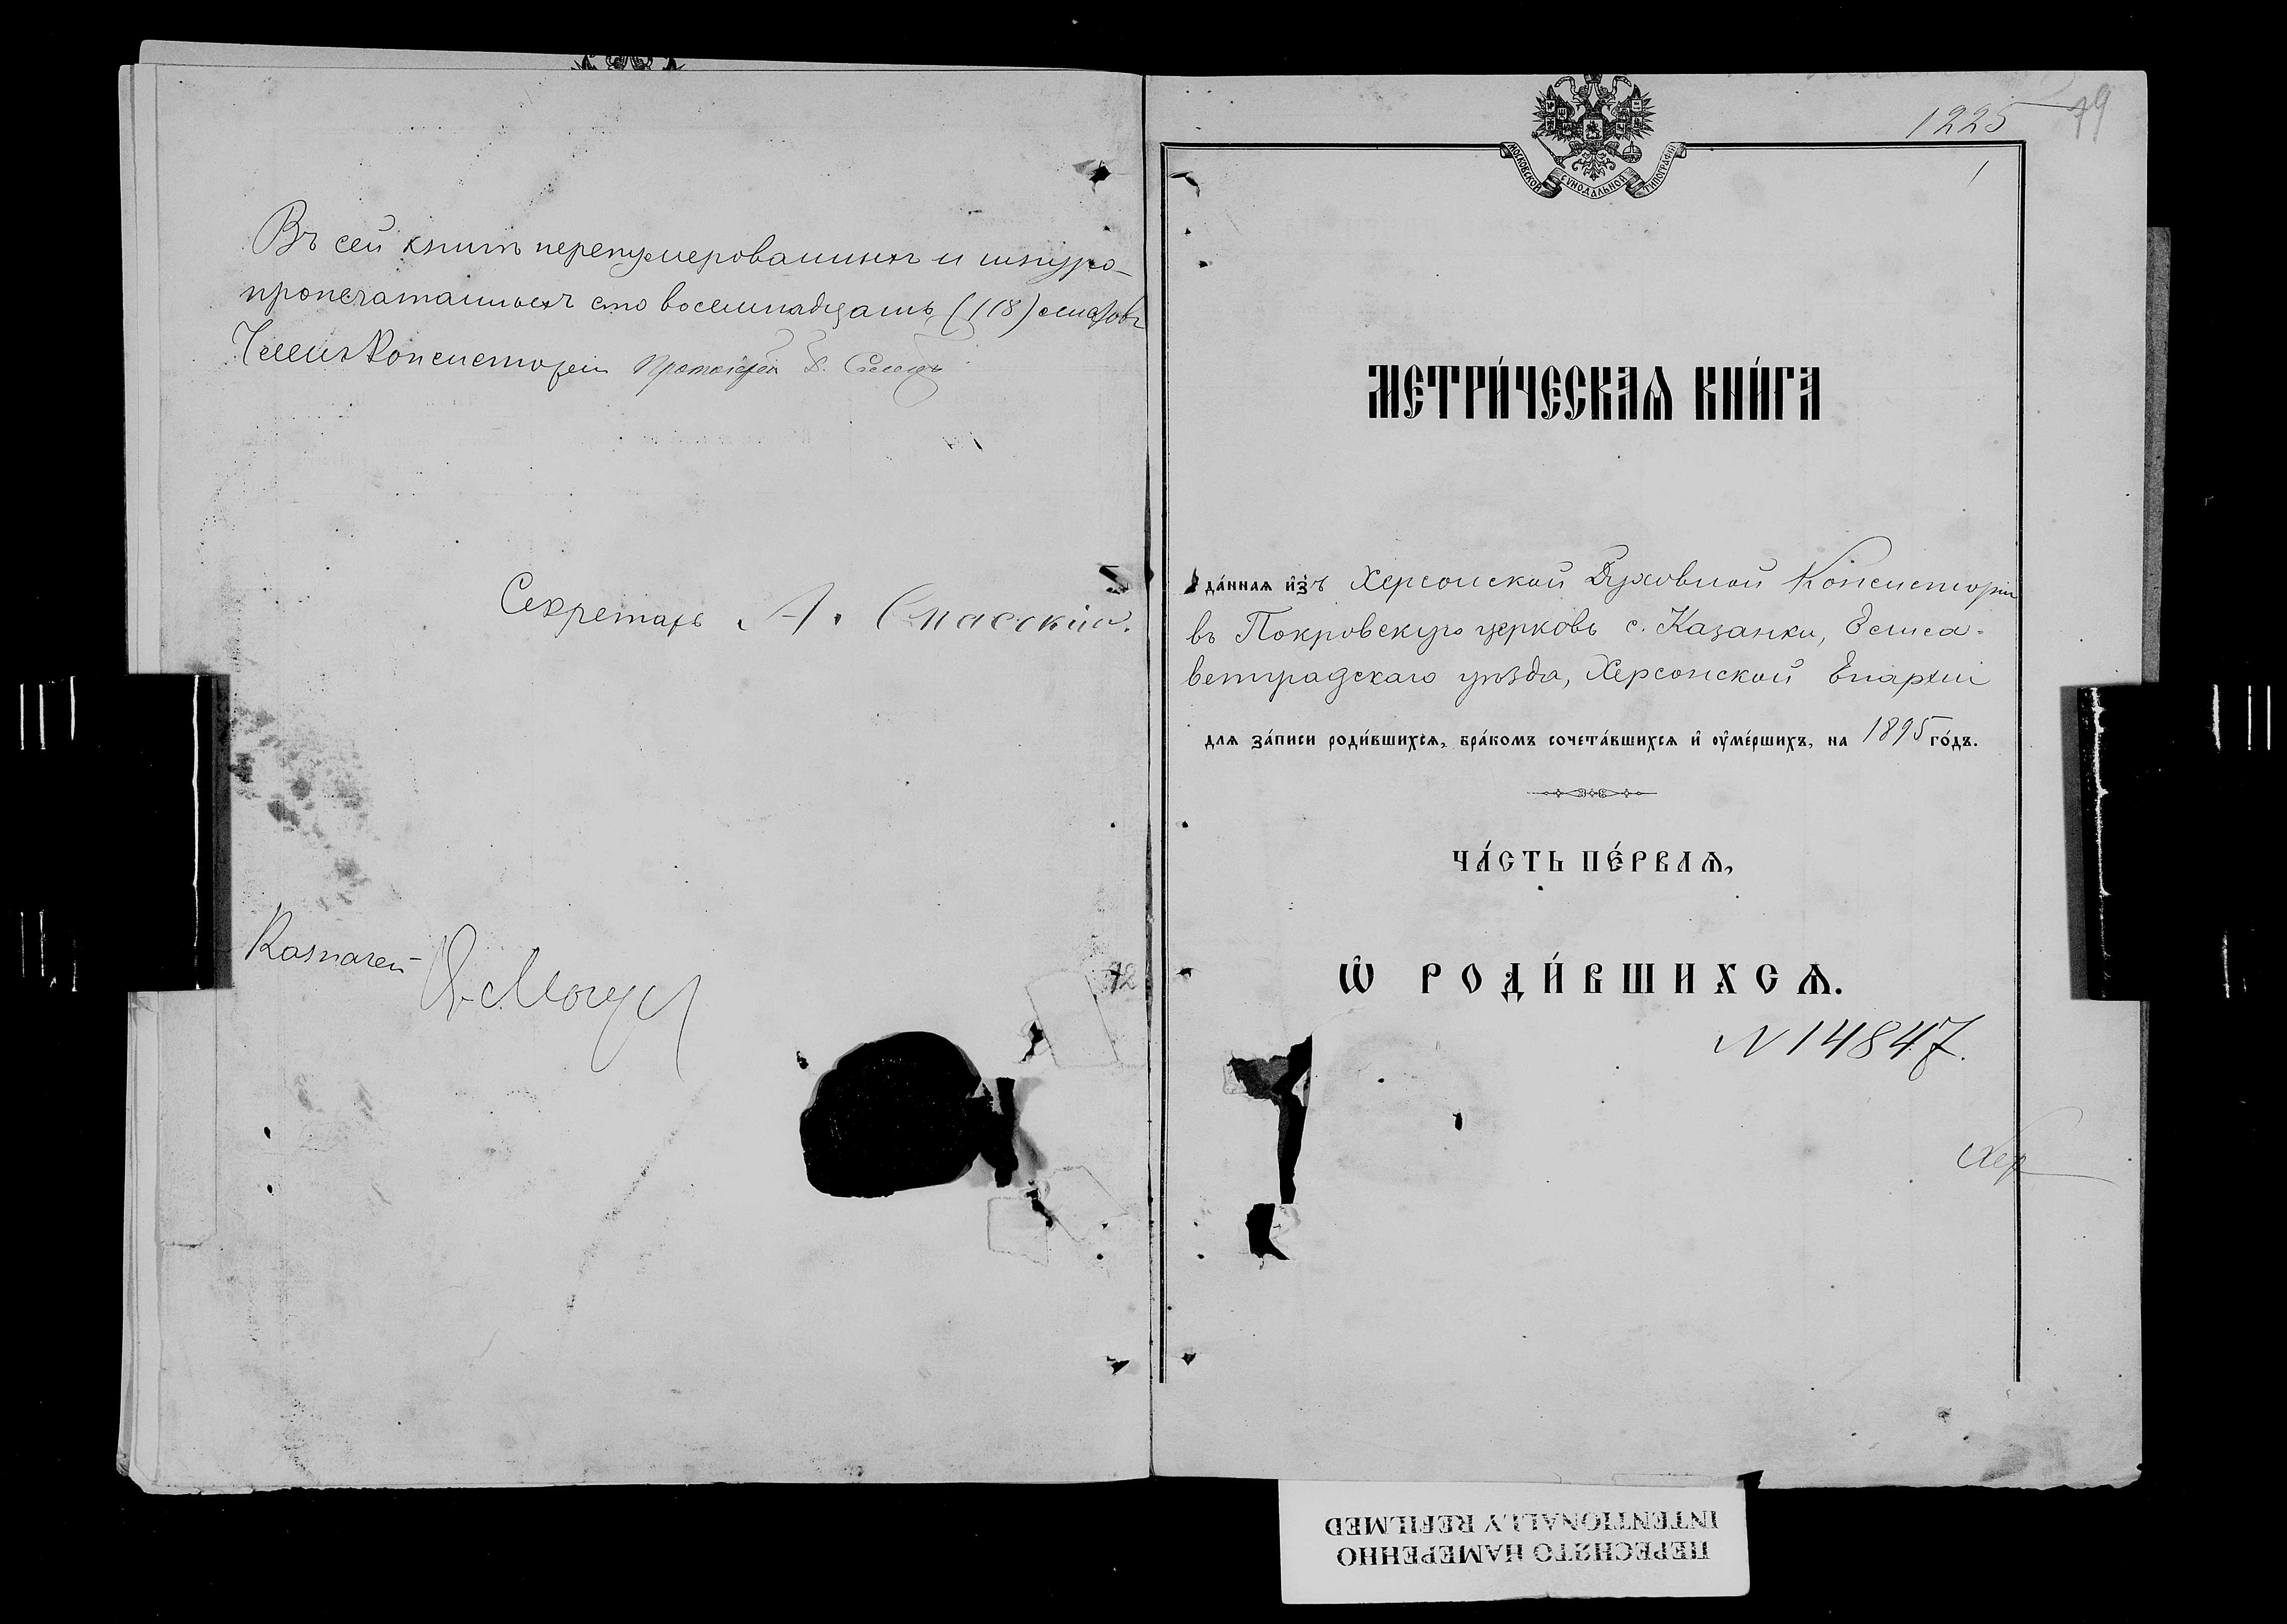 Въ сей книгѣ перенумерованныхъ и шнуро-
пропечатанныхъ сто восемнадцать (118) листовъ
Членъ Консисторіи Протоіерей
Секретарь А. Спасскій.
Казначей
12
1225
79
1
МОСКОВСКОЙ СѴНОДАЛЬНОЙ ТИПОГРАФІИ
МЕТРИ́ЧЕСКАѦ КНИ́ГА
да́ннаѧ и҆́зъ Херсонской Духовной Консисторіи
въ Покровскую церковь с. Казанки, Елиса-
ветградскаго уѣзда, Херсонской Епархіи
длѧ за́писи роди́вшихсѧ, бра́комъ сочета́вшихсѧ и҆ оу҆ме́ршихъ, на 1895 го́дъ.
ЧА́СТЬ ПЕ́РВАѦ,
Ѡ҆ РОДИ́ВШИХСѦ.
N 14847.
Хер
ПЕРЕСНЯТО НАМЕРЕННО
INTENTIONALLY REFILMED